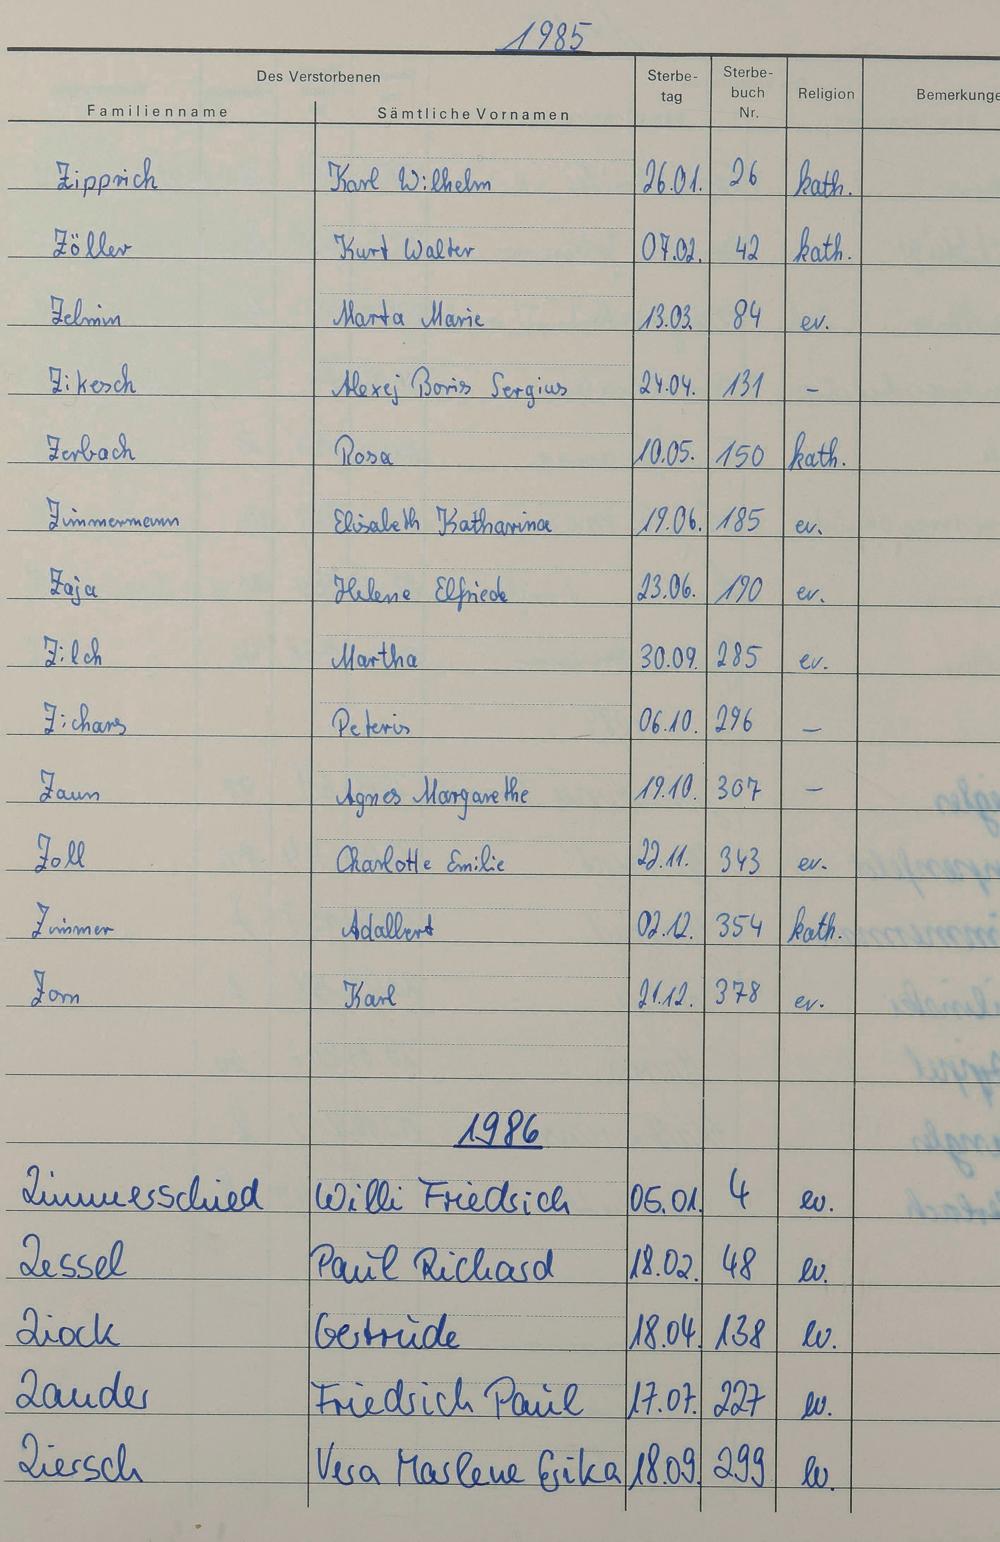 1985
Des Verstorbenen Sterbe- Sterbe-
tag buch Religion Bemerkunge
Familienname Sämtliche Vornamen Nr.
Zipprich Karl Wilhelm 26.01. 26 kath.
Zöller Kurt Walter 07.02. 42 kath.
Zelmin Marta Marie 13.03. 84 ev.
Zikesch Alexej Boris Sergius 24.04. 131 –
Zerbach Rosa 10.05. 150 kath.
Zimmermann Elisabeth Katharina 19.06. 185 ev.
Zaja Helene Elfriede 23.06. 190 ev.
Zilch Martha 30.09. 285 ev.
Zichars Peteris 06.10. 296 –
Zaun Agnes Margarethe 19.10. 307 –
Zoll Charlotte Emilie 22.11. 343 ev.
Zimmer Adalbert 02.12. 354 kath.
Zorn Karl 21.12. 378 ev.
1986
Zimmerschied Willi Friedrich 05.01. 4 ev.
Zessel Paul Richard 18.02. 48 ev.
Ziock Gertrude 18.04. 138 ev.
Zander Friedrich Paul 17.07. 227 ev.
Ziersch Vera Marlene Erika 18.09. 299 ev.